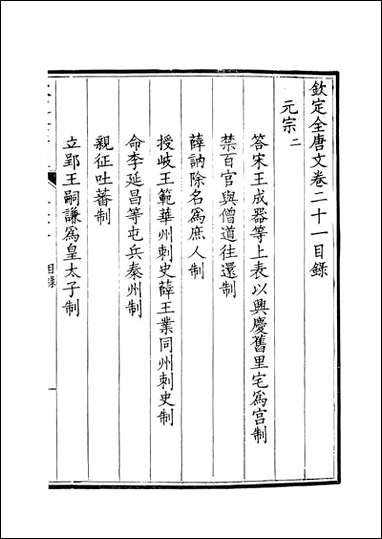 欽定全唐文卷二十一目錄
元宗 二
答宋王成器等上表以興慶舊里宅爲宫制
禁百官與僧道往還制
薛訥除名爲庶人制
授岐王範華州刺史薛王業同州刺史制
命李延昌等屯兵秦州制
親征吐蕃制
立郢王嗣謙爲皇太子制
目錄